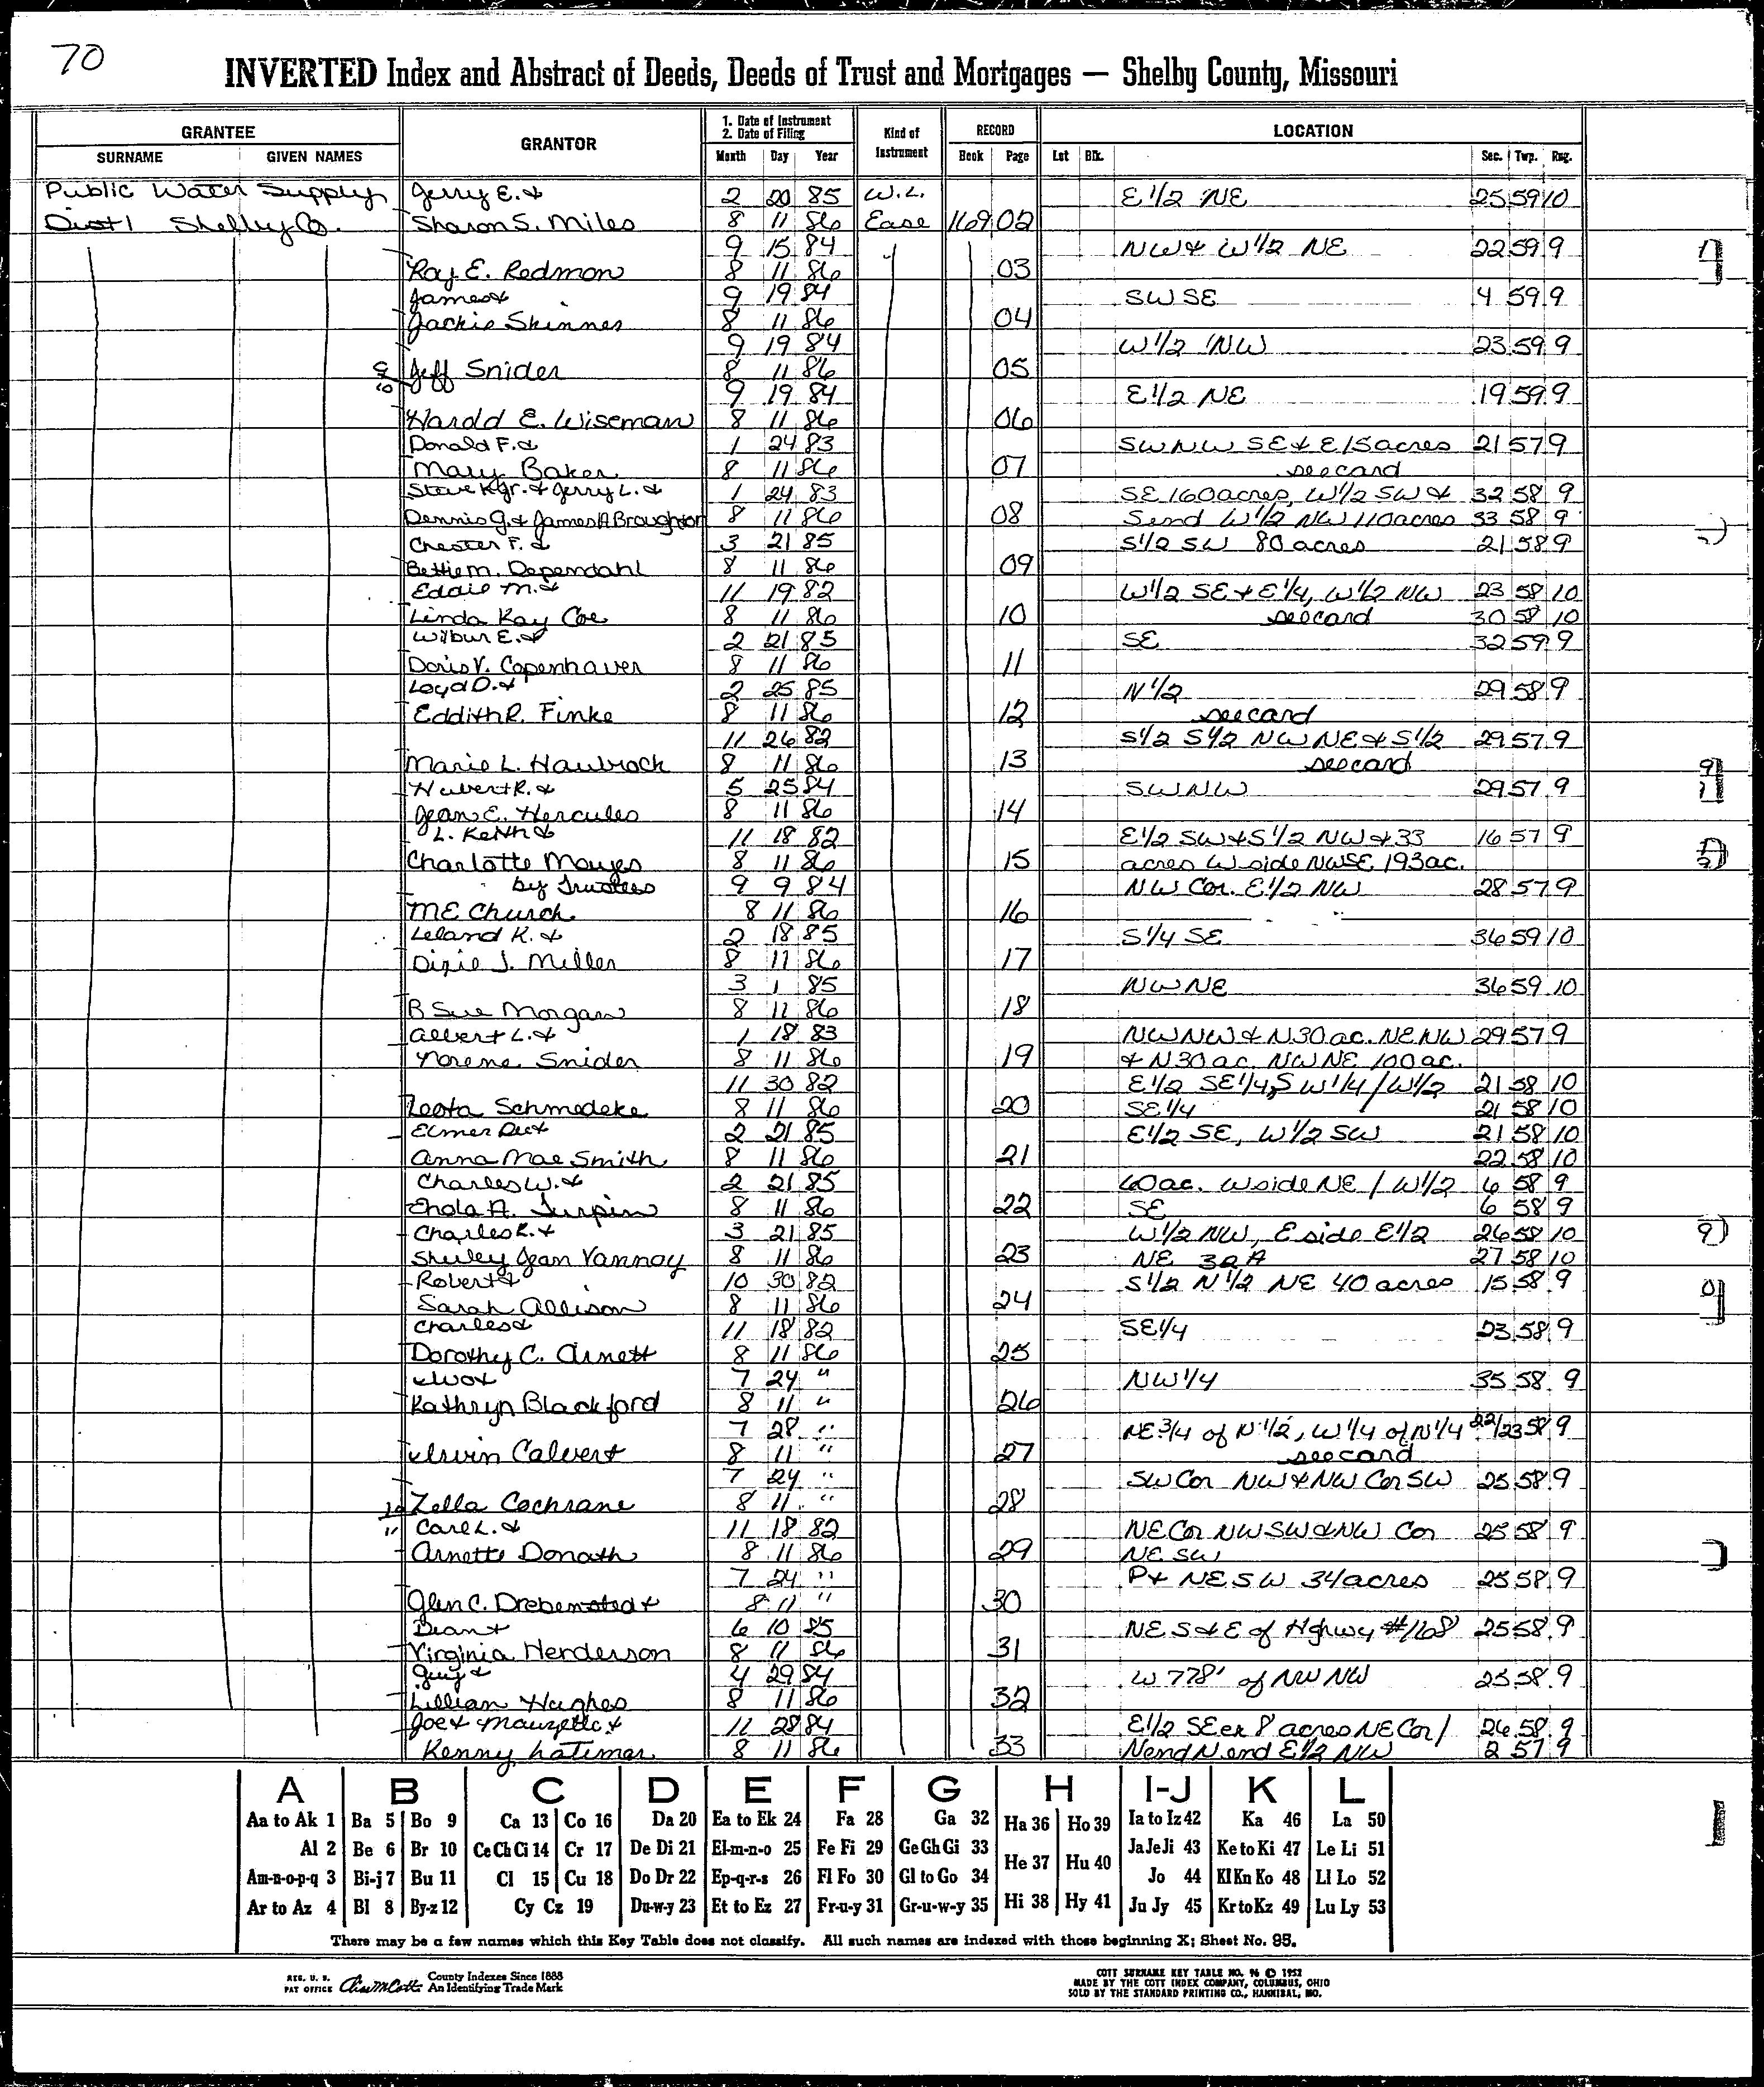 70
INVERTED Index and Abstract of Deeds, Deeds of Trust and Mortgages — Shelby County, Missouri
GRANTEE GRANTOR 1. Date of Instrument 2. Date of Filing Kind of Instrument RECORD LOCATION
SURNAME GIVEN NAMES Month Day Year Book Page Lot Blk. Sec. Twp. Rng.
Public Water Supply Jerry E. & 2 20 85 W.L. E 1/2 NE 25 59 10
Dist 1 Shelby Co. Sharon S. Miles 8 11 86 Ease 169 02
9 15 84 NW & W 1/2 NE 22 59 9
Ray E. Redmon 8 11 86 03
James & 9 19 84 SW SE 4 59 9
Jackie Skinner 8 11 86 04
9 19 84 W 1/2 NW 23 59 9
Jeff Snider 8 11 86 05
9 19 84 E 1/2 NE 19 59 9
Harold E. Wiseman 8 11 86 06
Donald F. & 1 24 83 SW NW SE & E 15 acres 21 57 9
Mary Baker 8 11 86 07 see card
Steve K Jr. & Jerry L. & 1 24 83 SE 160 acres, W 1/2 SW & 32 58 9
Dennis G. & James A Broughton 8 11 86 08 S end W 1/2 NW 110 acres 33 58 9
Chester F. & 3 21 85 S 1/2 SW 80 acres 21 58 9
Bettie M. Dependahl 8 11 86 09
Eddie M. & 11 19 82 W 1/2 SE & E 1/4, W 1/2 NW 23 58 10
Linda Kay Coe 8 11 86 10 see card 30 58 10
Wilbur E. & 2 21 85 SE 32 59 9
Doris V. Copenhaver 8 11 86 11
Loyd D. & 2 25 85 N 1/2 29 58 9
Eddith R. Finke 8 11 86 12 see card
11 26 82 S 1/2 S 1/2 NW NE & S 1/2 29 57 9
Marie L. Hawbrock 8 11 86 13 see card
Hubert R. & 5 25 84 SW NW 29 57 9
Jean E. Hercules 8 11 86 14
L. Keith & 11 18 82 E 1/2 SW & S 1/2 NW & 33 16 57 9
Charlotte Mayes 8 11 86 15 acres W side NWSE 193 ac.
by Trustees 9 9 84 NW Cor. E 1/2 NW 28 57 9
ME Church 8 11 86 16
Leland K. & 2 18 85 S 1/4 SE 36 59 10
Dixie J. Miller 8 11 86 17
3 1 85 NW NE 36 59 10
B Sue Morgan 8 11 86 18
Albert L. & 1 18 83 NW NW & N 30 ac. NE NW 29 57 9
Norene Snider 8 11 86 19 & N 30 ac. NW NE 100 ac.
11 30 82 E 1/2 SE 1/4, SW 1/4 / W 1/2 21 58 10
Leota Schmedeke 8 11 86 20 SE 1/4 21 58 10
Elmer Du & 2 21 85 E 1/2 SE, W 1/2 SW 21 58 10
Anna Mae Smith 8 11 86 21 22 58 10
Charles W. & 2 21 85 60 ac. W side NE / W 1/2 6 58 9
Enola A. Turpin 8 11 86 22 SE 6 58 9
Charles R. & 3 21 85 W 1/2 NW, E side E 1/2 26 58 10
Shirley Jean Vannoy 8 11 86 23 NE 32 A 27 58 10
Robert & 10 30 82 S 1/2 N 1/2 NE 40 acres 15 58 9
Sarah Allison 8 11 86 24
Charles & 11 18 82 SE 1/4 23 58 9
Dorothy C. Arnett 8 11 86 25
7 24 " NW 1/4 35 58 9
Kathryn Blackford 8 11 " 26
7 28 " NE 3/4 of N 1/2, W 1/4 of N 1/4 22/23 58 9
Irvin Calvert 8 11 " 27 see card
7 24 " SW Cor NW & NW Cor SW 25 58 9
Zella Cochrane 8 11 " 28
Carl L. & 11 18 82 NE Cor NW SW & NW Cor 25 58 9
Arnette Donath 8 11 86 29 NE SW
7 24 " Pt NE SW 34 acres 25 58 9
Glen C. Drebenstedt 8 11 " 30
Dean & 6 10 85 NE S & E of Highwy #168 25 58 9
Virginia Henderson 8 11 86 31
Guy & 4 29 84 W 778' of NW NW 25 58 9
Lillian Hughes 8 11 86 32
Joe & Mauzette & 11 28 84 E 1/2 SE ex 8 acres NE Cor / 26 58 9
Kenny Latimer 8 11 86 33 N end N end E 1/2 NW 2 57 9
A B C D E F G H I-J K L
Aa to Ak 1 Ba 5 Bo 9 Ca 13 Co 16 Da 20 Ea to Ek 24 Fa 28 Ga 32 Ha 36 Ho 39 Ia to Iz 42 Ka 46 La 50
Al 2 Be 6 Br 10 Ce Ch Ci 14 Cr 17 De Di 21 El-m-n-o 25 Fe Fi 29 Ge Gh Gi 33 He 37 Hu 40 Ja Je Ji 43 Ke to Ki 47 Le Li 51
Am-n-o-p-q 3 Bi-j 7 Bu 11 Cl 15 Cu 18 Do Dr 22 Ep-q-r-s 26 Fl Fo 30 Gl to Go 34 Jo 44 Kl Kn Ko 48 Ll Lo 52
Ar to Az 4 Bl 8 By-z 12 Cy Cz 19 Du-w-y 23 Et to Ez 27 Fr-u-y 31 Gr-u-w-y 35 Hi 38 Hy 41 Ju Jy 45 Kr to Kz 49 Lu Ly 53
There may be a few names which this Key Table does not classify. All such names are indexed with those beginning X; Sheet No. 95.
REG. U. S. PAT OFFICE County Indexes Since 1888 An Identifying Trade Mark
COTT SURNAME KEY TABLE NO. 96 © 1952
MADE BY THE COTT INDEX COMPANY, COLUMBUS, OHIO
SOLD BY THE STANDARD PRINTING CO., HANNIBAL, MO.